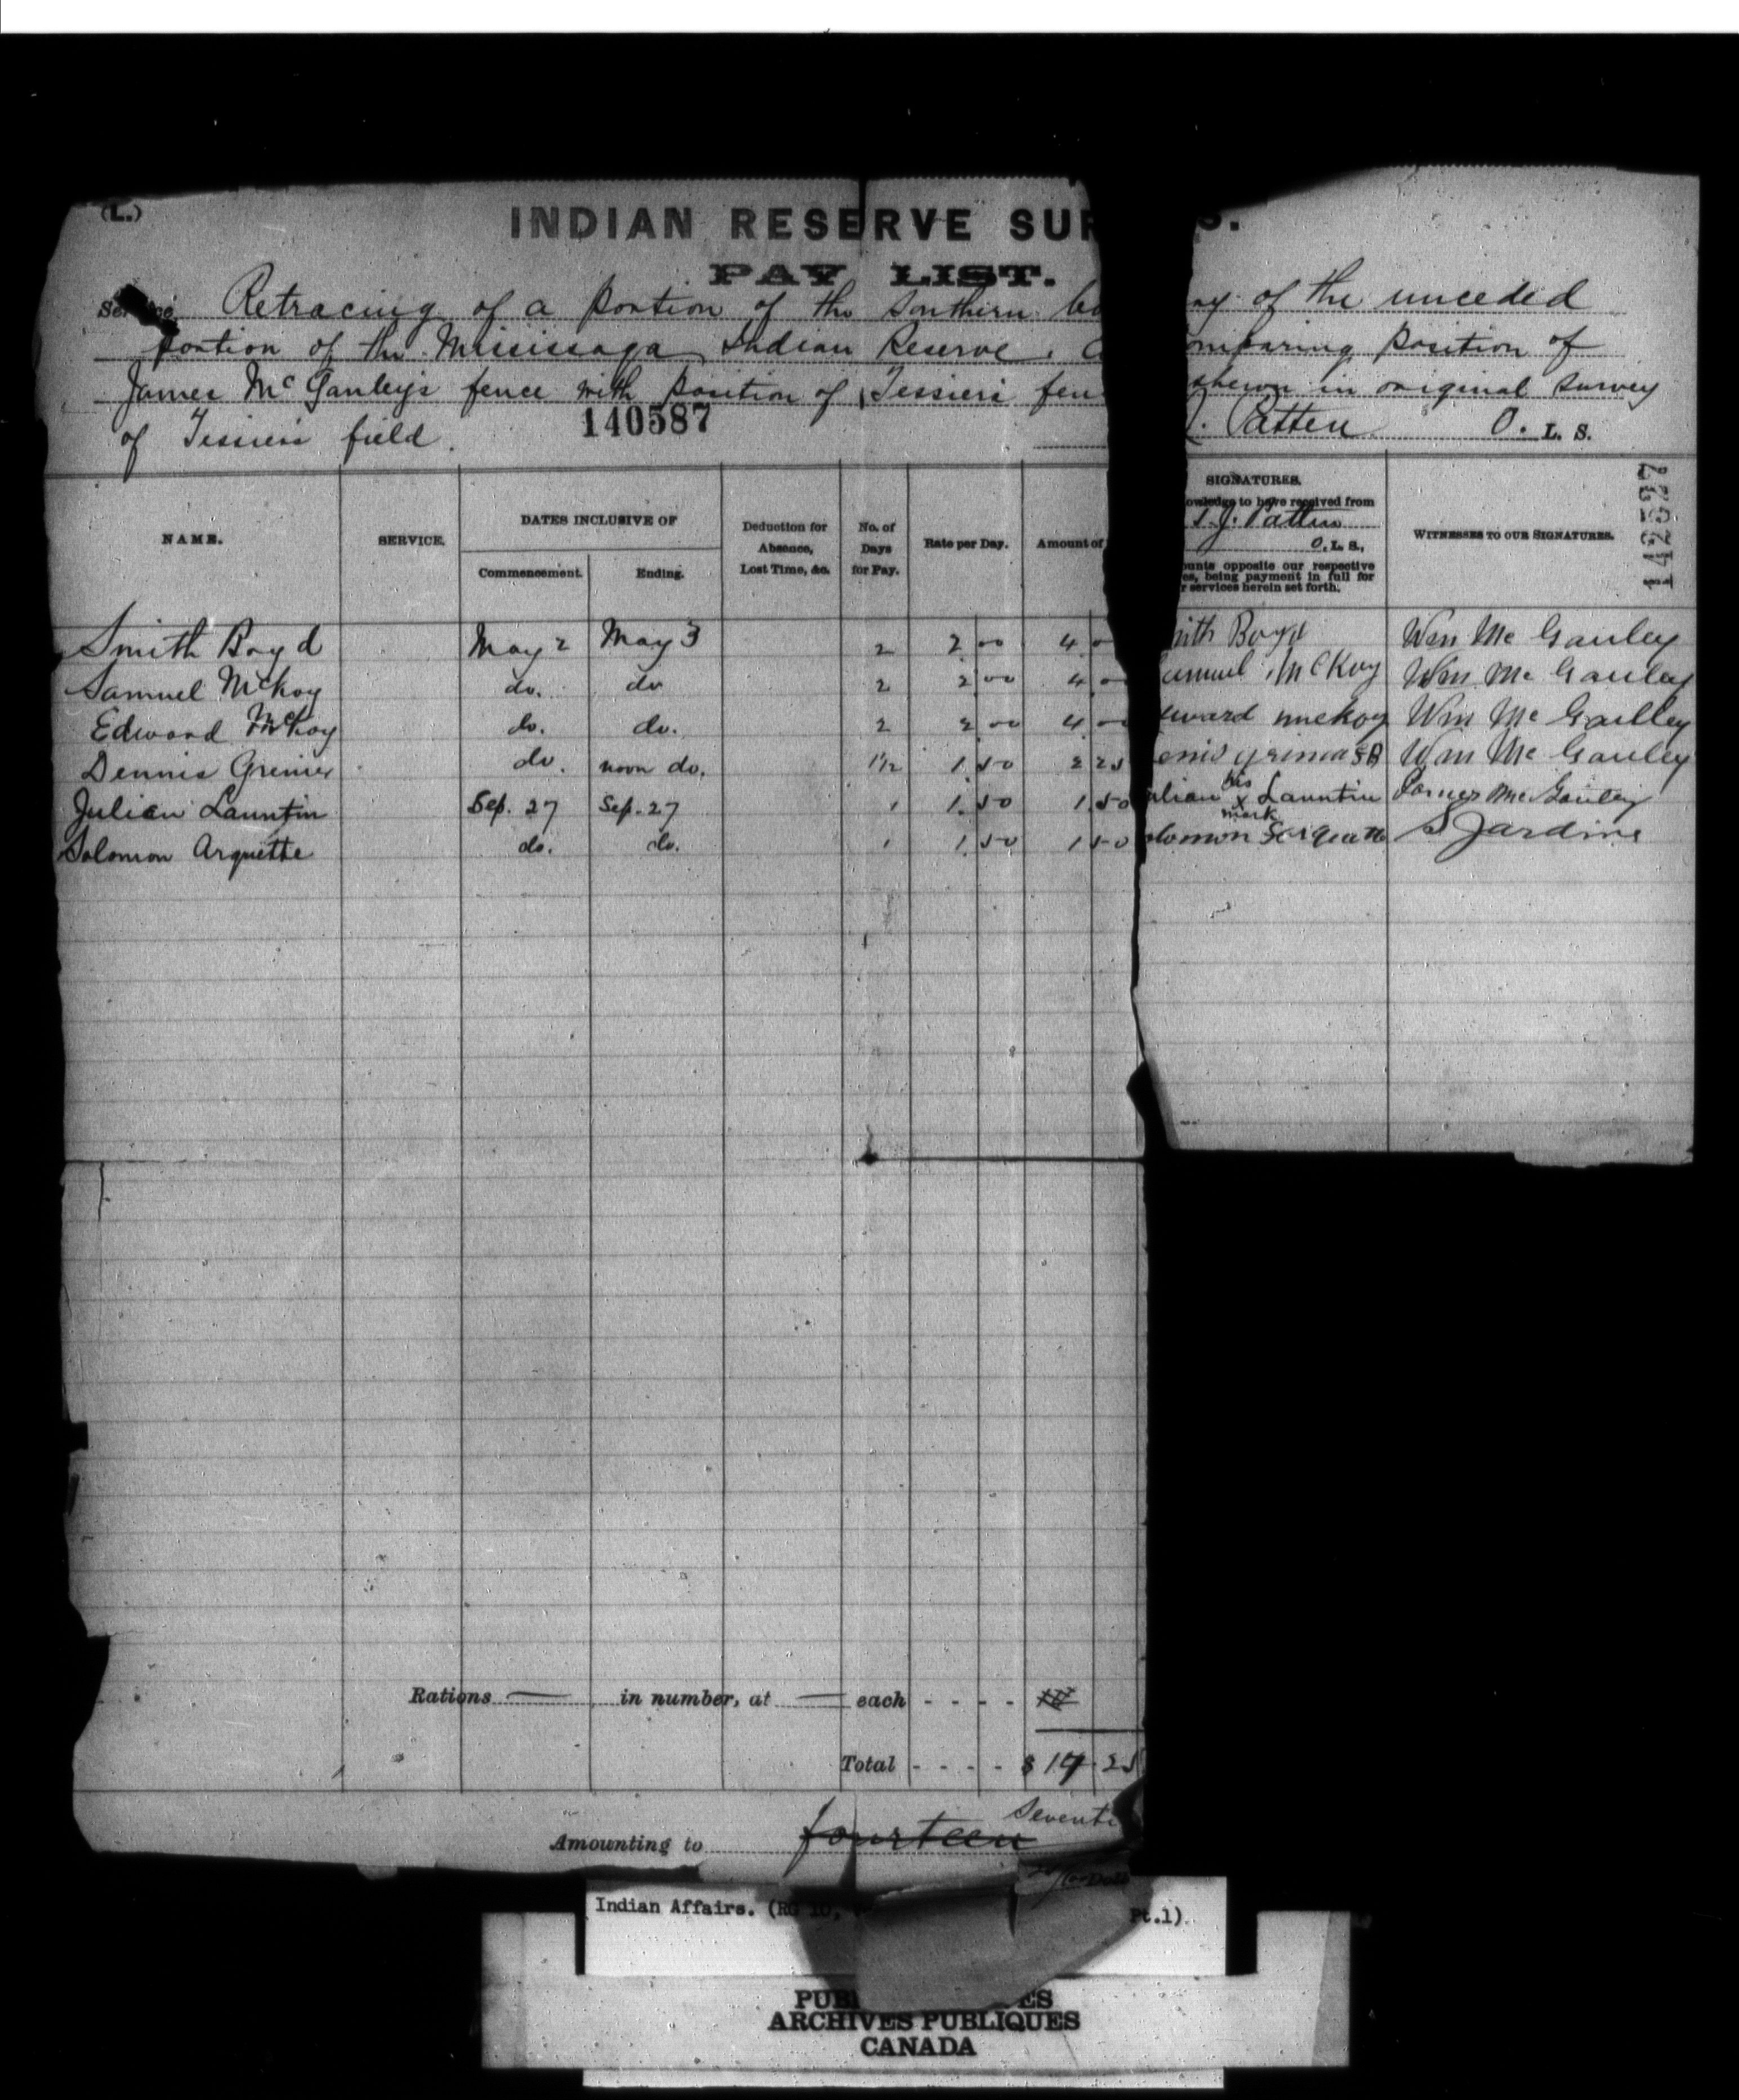 (L.)
INDIAN RESERVE SUR S.
PAY LIST.
Retracing of a portion of the Southern bo ay of the unceded
portion of the Mississaga Indian Reserve. C omparing position of
James McGauley's fence with position of Tessiers fen shewn in original survey
of Tessiers field. 140587 Patten O. L. S.
142527
NAME. SERVICE. DATES INCLUSIVE OF Commencement. Ending. Deduction for Absence, Lost Time, &c. No. of Days for Pay. Rate per Day. Amount of SIGNATURES. WITNESSES TO OUR SIGNATURES.
owledge to have received from
T. J. Patten
O. L. S.,
ounts opposite our respective
es, being payment in full for
r services herein set forth.
Smith Boyd May 2 May 3 2 2 00 4 mith Boyd Wm Mc Gauley
Samuel McKoy do. do 2 2 00 4 amuel McKoy Wm Mc Gauley
Edward McKoy do. do. 2 2 00 4 dward mckoy Wm Mc Gaulley
Dennis Grenier do. noon do. 1½ 1 50 2 25 enis Wm Mc Gauley
Julian Launtin Sep. 27 Sep. 27 1 1 50 1 50 ulian his x mark Launtin James McGauley
Solomon Arquette do. do. 1 1 50 1 50 olomon S Jardine
Rations in number, at each - - - -
Total - - - - $ 17 25
Amounting to fourteen Seventee
/100 Doll
Indian Affairs. (RG 10, Pt.1)
PUB ES
ARCHIVES PUBLIQUES
CANADA